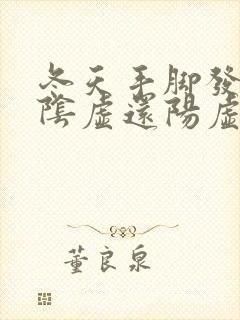 冬天手脚發
陰虛還陽虛
董良泉